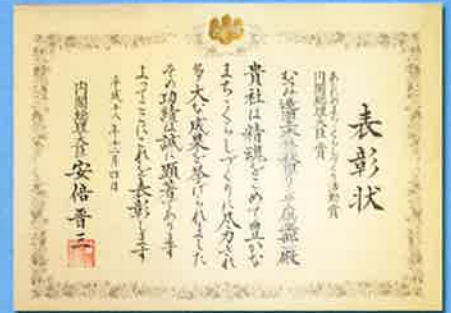 表彰状
あしたのまち・くらしづくり活動賞
内閣総理大臣賞
殿
貴社は精魂をこめて豊かな
まち・くらしづくりに尽力され
多大な成果を挙げられました
その功績は誠に顕著であります
よってここにこれを表彰します
平成十八年十一月四日
内閣総理大臣 安倍晋三